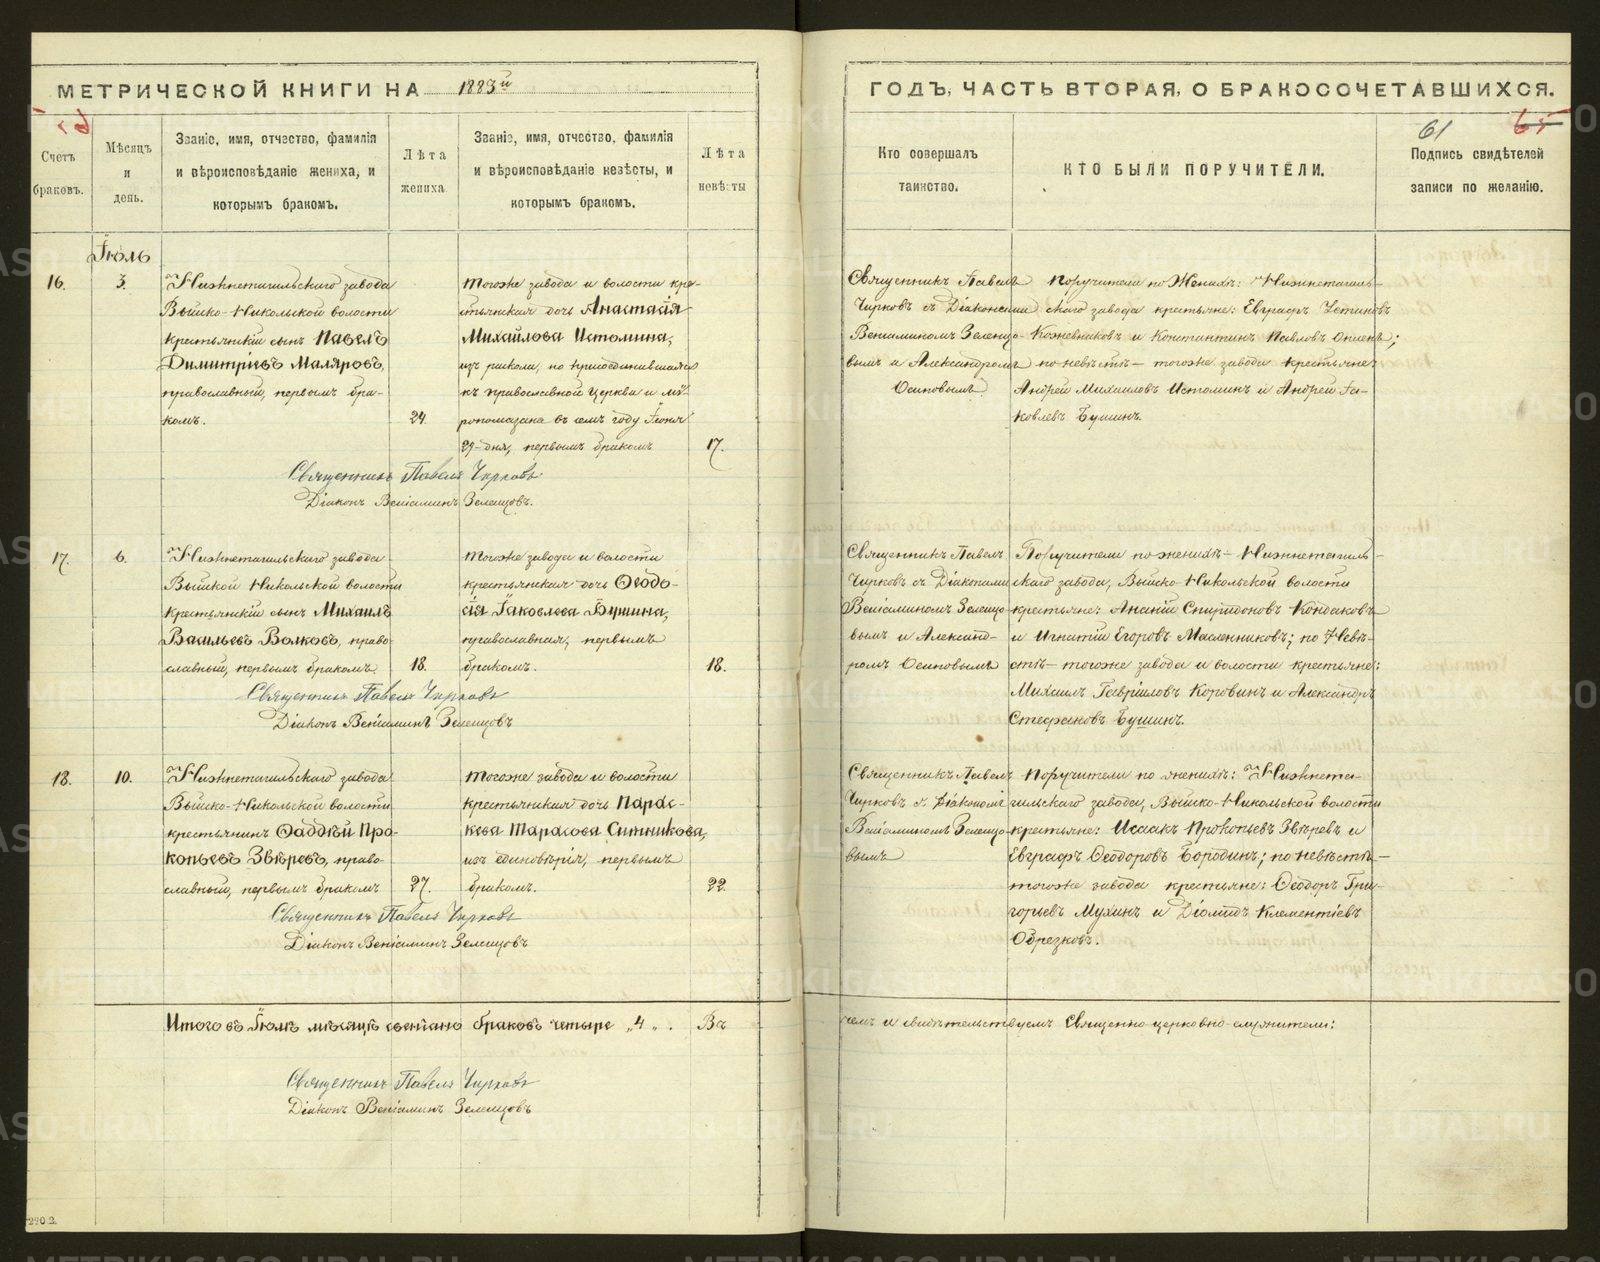 МЕТРИЧЕСКОЙ КНИГИ НА 1883й
Счетъ браковъ.
Мѣсяцъ и день.
Званіе, имя, отчество, фамилія
и вѣроисповѣданіе жениха, и
которымъ бракомъ.
Лѣта жениха
Званіе, имя, отчество, фамилія
и вѣроисповѣданіе невѣсты, и
которымъ бракомъ.
Лѣта невѣсты
Іюль
16. 3.
Нижнетагильскаго завода
Выйско-Никольской волости
крестьянскій сынъ Павелъ
Димитріевъ Маляровъ,
православный, первымъ бра-
комъ. 24.
тогоже завода и волости кре-
стьянская дочь Анастасія
Михайлова Истомина,
изъ раскола, но присоединившаяся
къ православной церкви и мѵ-
ропомазана въ семъ году Іюня
29 дня, первымъ бракомъ 17.
Священникъ Павелъ Чирковъ
Діаконъ Веніаминъ Зеленцовъ.
17. 6.
Нижнетагильскаго завода
Выйской Никольской волости
крестьянскій сынъ Михаилъ
Васильевъ Волковъ, право-
славный, первымъ бракомъ 18.
тогоже завода и волости
крестьянская дочь Ѳеодо-
сія Іаковлева Бушина,
православная, первымъ
бракомъ. 18.
Священникъ Павелъ Чирковъ
Діаконъ Веніаминъ Зеленцовъ
18. 10.
Нижнетагильскаго завода
Выйско-Никольской волости
крестьянинъ Ѳаддѣй Про-
копьевъ Звѣревъ, право-
славный, первымъ бракомъ 27.
тогоже завода и волости
крестьянская дочь Парас-
кева Тарасова Ситникова,
изъ единовѣрія, первымъ
бракомъ. 22.
Священникъ Павелъ Чирковъ
Діаконъ Веніаминъ Зеленцовъ
Итого въ Іюлѣ мѣсяцѣ свенчано браковъ четыре „4„. Въ
Священникъ Павелъ Чирковъ
Діаконъ Веніаминъ Зеленцовъ
290 2.
ГОДЪ, ЧАСТЬ ВТОРАЯ, О БРАКОСОЧЕТАВШИХСЯ.
61 65
Кто совершалъ
таинство.
КТО БЫЛИ ПОРУЧИТЕЛИ.
Подпись свидѣтелей
записи по желанію.
Священникъ Павелъ
Чирковъ съ Діаконами
Веніаминомъ Зеленцо-
вымъ и Александромъ
Осиповымъ
Поручители по Женихѣ: Нижнетагиль-
скаго завода крестьяне: Евграфъ Устиновъ
Кожевниковъ и Константинъ Павловъ;
по невѣстѣ – тогоже завода крестьяне:
Андрей Михаиловъ Истоминъ и Андрей Іа-
ковлевъ Бушинъ.
Священникъ Павелъ
Чирковъ съ Діаконами
Веніаминомъ Зеленцо-
вымъ и Александ-
ромъ Осиповымъ
Поручители по женихѣ – Нижнетагиль-
скаго завода, Выйско-Никольской волости
крестьяне: Ананій Спиридоновъ Кондаковъ
и Игнатій Егоровъ Масленниковъ; по Невѣ-
стѣ – тогоже завода и волости крестьяне:
Михаилъ Гавріиловъ Коровинъ и Александръ
Стефановъ Бушинъ.
Священникъ Павелъ
Чирковъ съ Діакономъ
Веніаминомъ Зеленцо-
вымъ
Поручители по женихѣ: Нижнета-
гильскаго завода, Выйско-Никольской волости
крестьяне: Исаакъ Прокопьевъ Звѣревъ и
Евграфъ Ѳеодоровъ Бородинъ; по невѣстѣ –
тогоже завода крестьяне: Ѳеодоръ Гри-
горьевъ Мухинъ и Діомидъ Клементіевъ
Обрезковъ.
чемъ и свидѣтельствуемъ Священно-церковно-служители:
METRIKI.GASO-URAL.RU